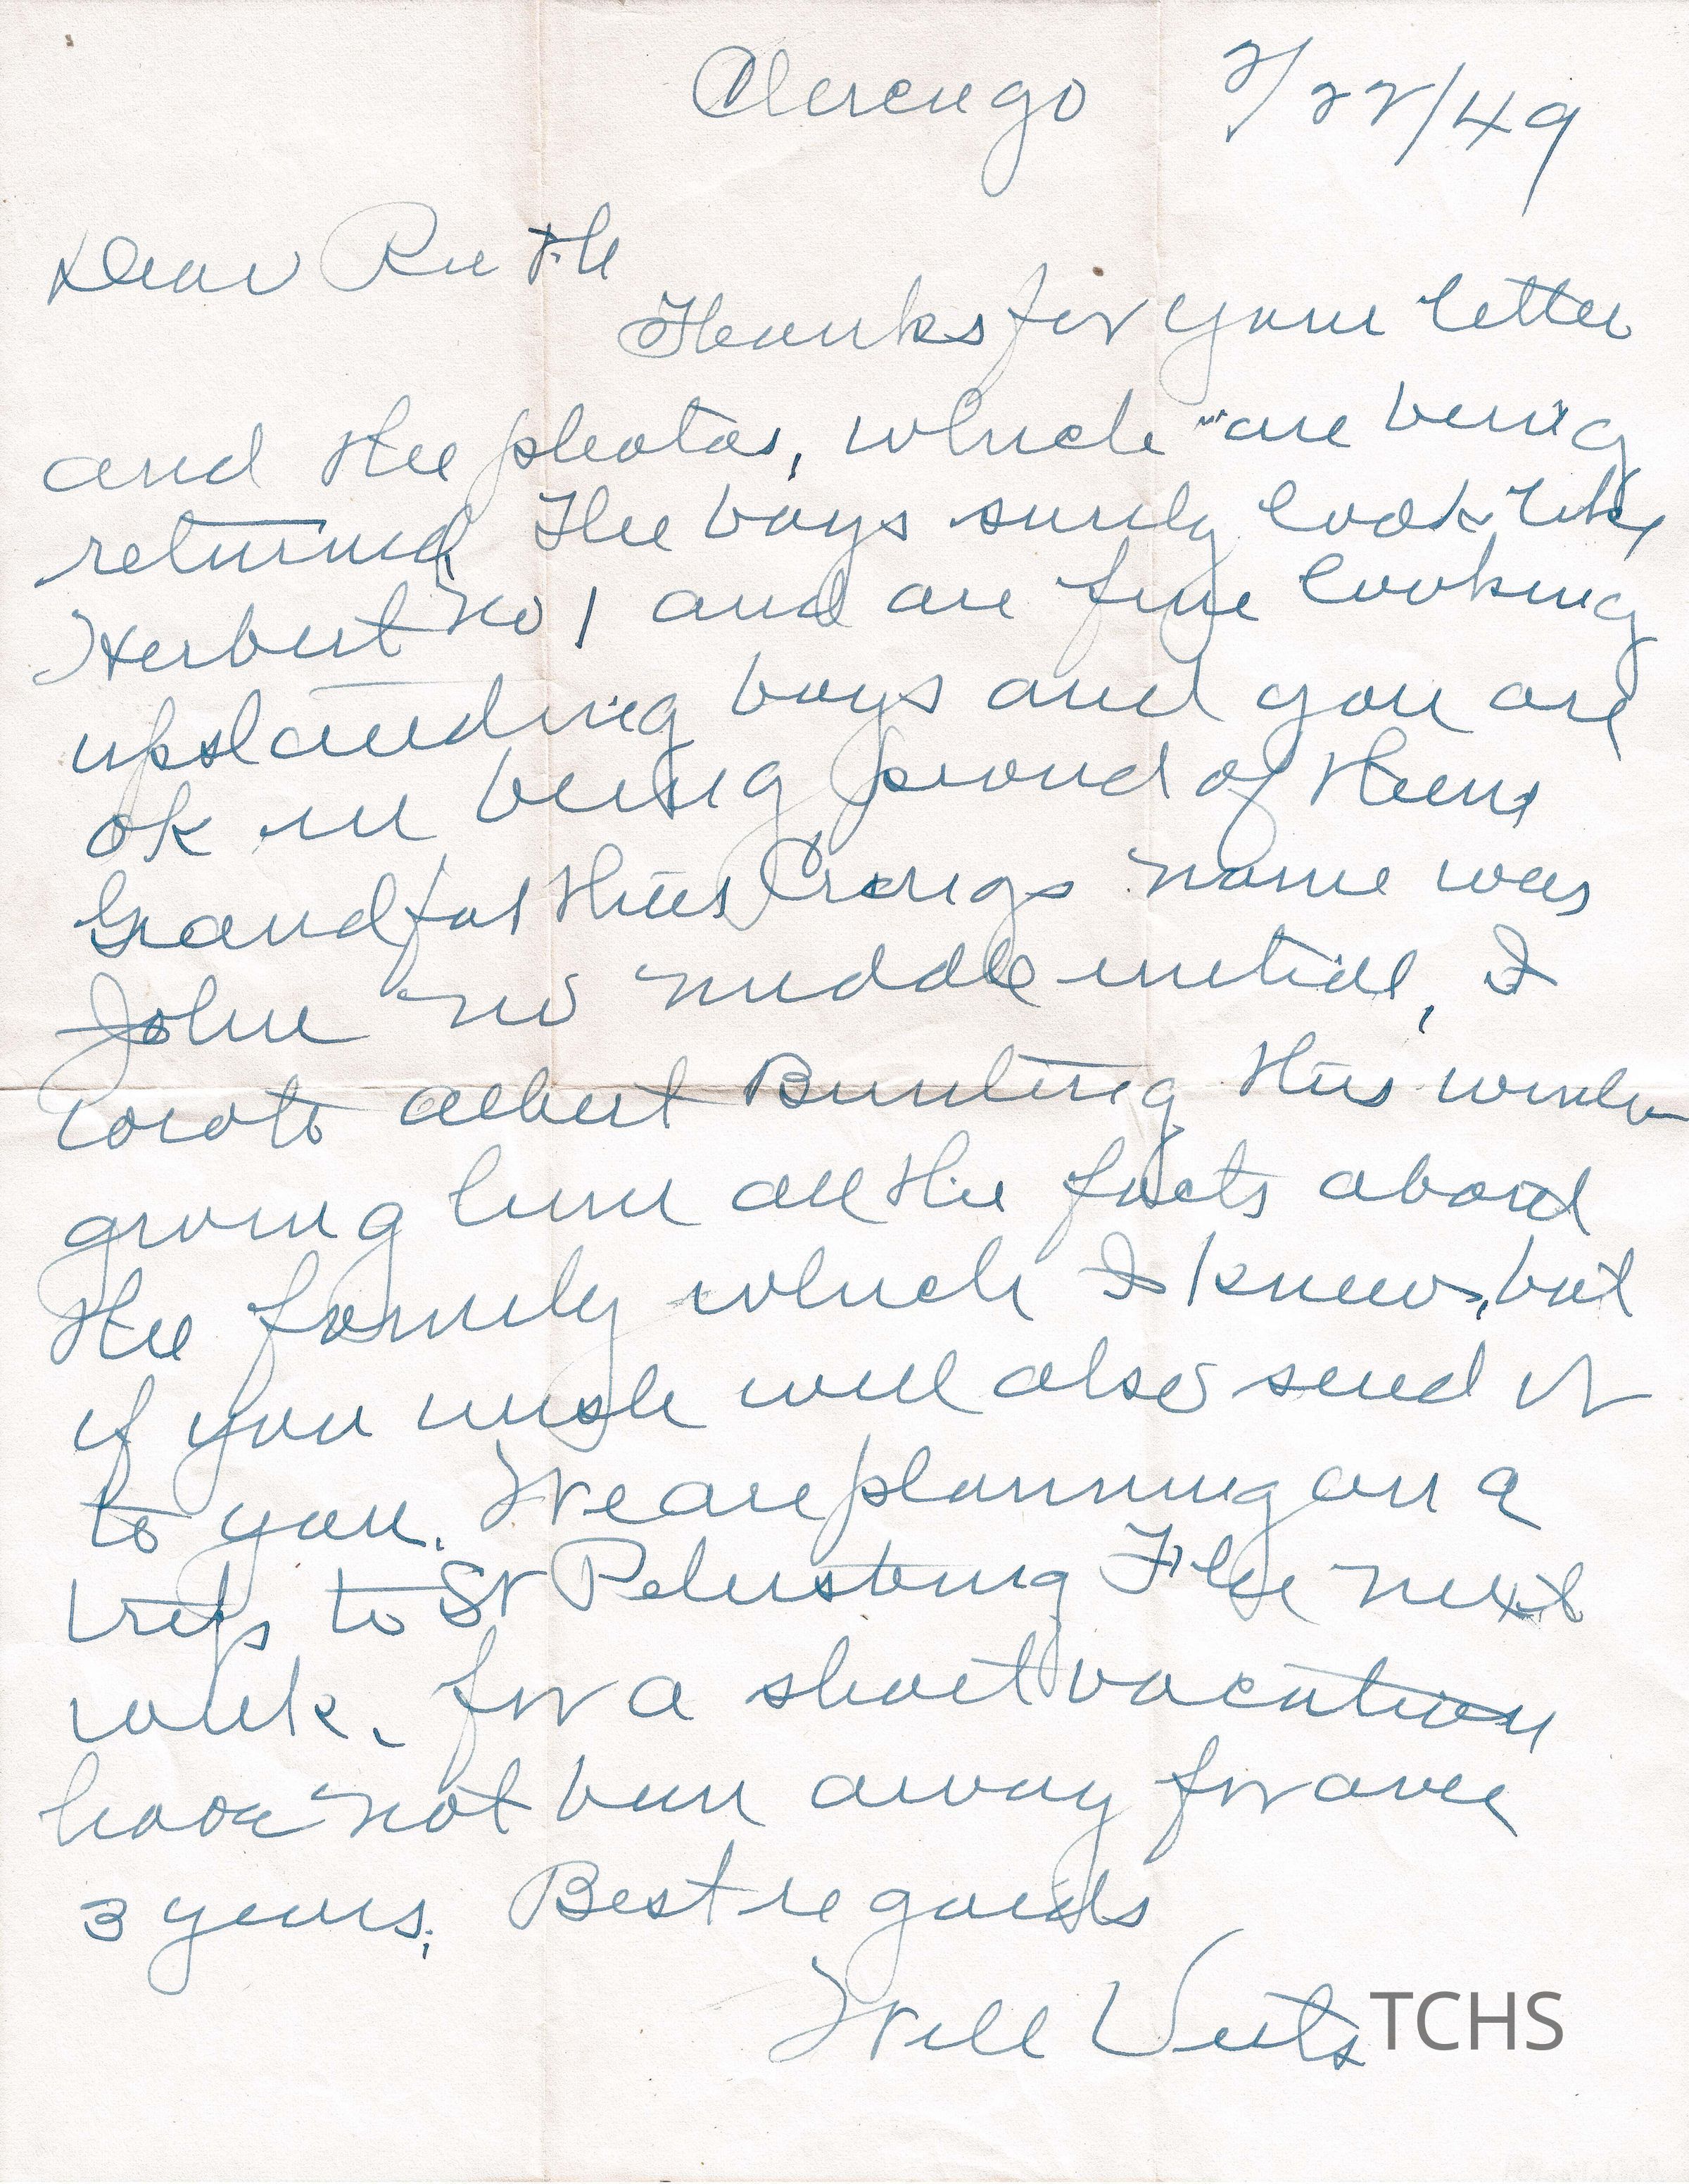 Chicago 2/22/49
Dear Ruth
Thanks for your letter
and the photos, which are being
returned The boys surely look like
Herbert No 1 and are fine looking
upstanding boys and you are
ok in being proud of them
Grandfathers Craigs name was
John no middle initial, I
wrote Albert Bunting this winter
giving him all the facts about
the family which I knew, but
if you wish will also send it
to you. We are planning on a
trip to St Petersburg Fla next
week, for a short vacation
have not been away for over
3 years. Best regards
Will Veits
TCHS